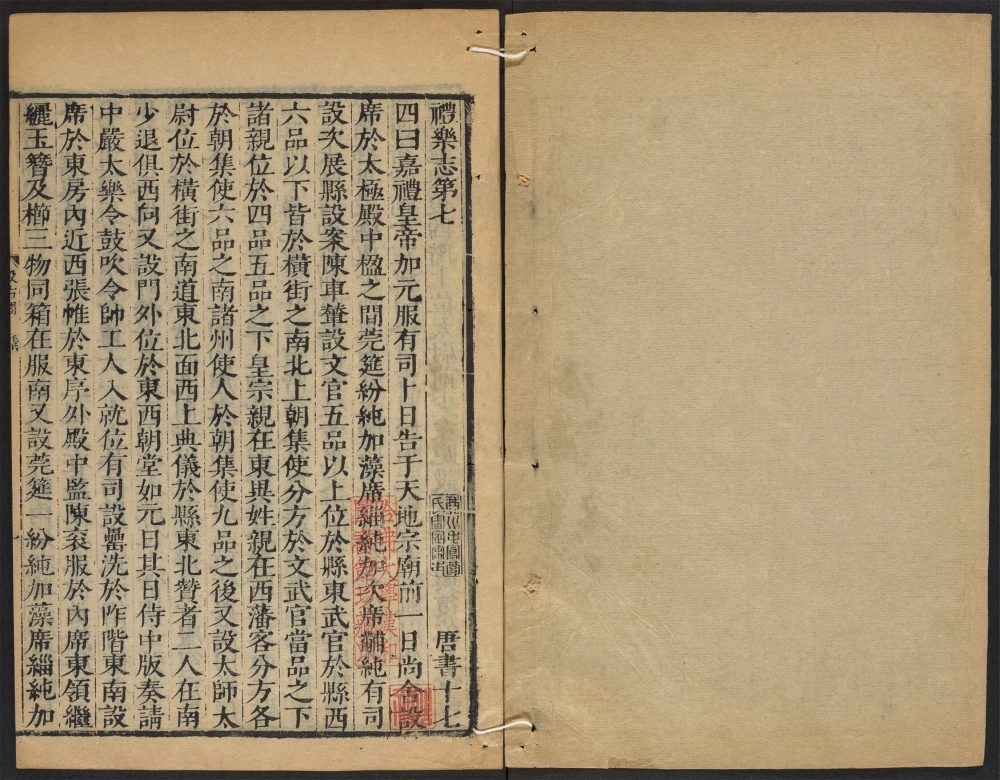 禮樂志第七 唐書十七
四曰嘉禮皇帝加元服有司卜日告于天地宗廟前一日尚舍設
席於太極殿中楹之間莞筵紛純加藻席緇純加次席黼純有司
設次展縣設案陳車輦設文官五品以上位於縣東武官於縣西
六品以下皆於橫街之南北上朝集使分方於文武官當品之下
諸親位於四品五品之下皇宗親在東異姓親在西藩客分方各
於朝集使六品之南諸州使人於朝集使九品之後又設太師太
尉位於橫街之南道東北面西上典儀於縣東北贊者二人在南
少退俱西向又設門外位於東西朝堂如元日其日侍中版奏請
中嚴太樂令鼓吹令帥工人入就位有司設罍洗於阼階東南設
席於東房內近西張帷於東序外殿中監陳衮服於內席東領纚
纚玉簪及櫛三物同箱在服南又設莞筵一紛純加藻席緇純加